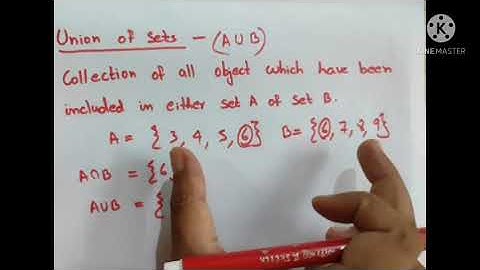 Union of sets - (A ∪ B)
Collection of all object which have been
included in either set A of set B.
A = { 3, 4, 5, 6} B= {6, 7, 8, 9}
A∩B = {6,
A∪B = {
K
KINEMASTER